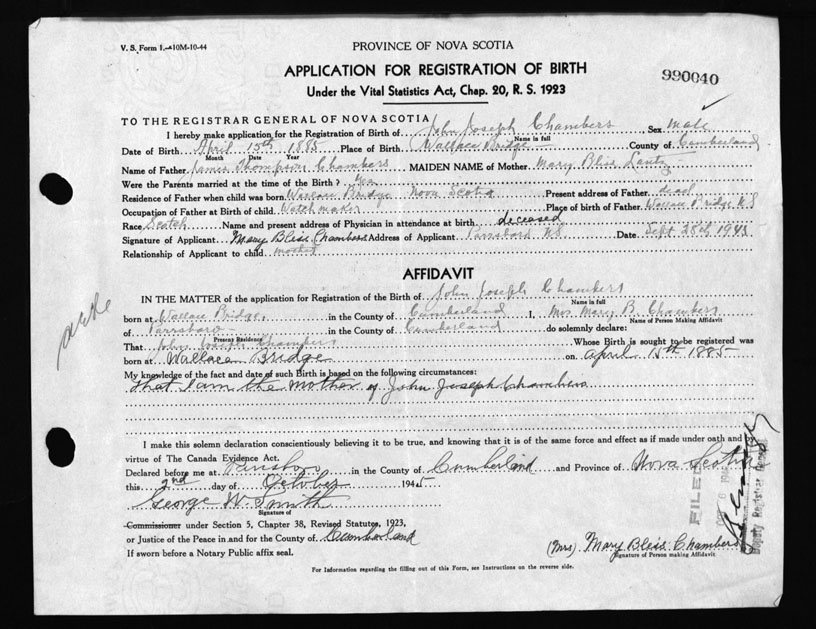 V. S. Form 1.—10M-10-44
PROVINCE OF NOVA SCOTIA
APPLICATION FOR REGISTRATION OF BIRTH
Under the Vital Statistics Act, Chap. 20, R. S. 1923
990040
TO THE REGISTRAR GENERAL OF NOVA SCOTIA
I hereby make application for the Registration of Birth of John Joseph Chambers Sex Male
Name in full
Date of Birth April 15th 1885 Place of Birth Wallace Bridge County of Cumberland
Month Date Year
Name of Father James Thompson Chambers MAIDEN NAME of Mother Mary Bliss
Were the Parents married at the time of the Birth? Yes
Residence of Father when child was born Wallace Bridge Nova Scotia Present address of Father dead
Occupation of Father at Birth of child Watchmaker Place of birth of Father Wallace Bridge N.S
Race Scotch Name and present address of Physician in attendance at birth deceased
Signature of Applicant Mary Bliss Chambers Address of Applicant Parrsboro N.S. Date Sept 28th 1945
Relationship of Applicant to child mother
AFFIDAVIT
IN THE MATTER of the application for Registration of the Birth of John Joseph Chambers
Name in full
born at Wallace Bridge, in the County of Cumberland I, Mrs Mary B. Chambers
Name of Person Making Affidavit
of Parrsboro in the County of Cumberland do solemnly declare:
Present Residence
That John Joseph Chambers Whose Birth is sought to be registered was
born at Wallace Bridge on April 15th 1885
My knowledge of the fact and date of such Birth is based on the following circumstances:
that I am the mother of John Joseph Chambers
I make this solemn declaration conscientiously believing it to be true, and knowing that it is of the same force and effect as if made under oath and by
virtue of The Canada Evidence Act.
Declared before me at Parrsboro in the County of Cumberland and Province of Nova Scotia
this 2nd day of October 1945
George W. Smith
Signature of
Commissioner under Section 5, Chapter 38, Revised Statutes, 1923,
or Justice of the Peace in and for the County of Cumberland
If sworn before a Notary Public affix seal.
(Mrs) Mary Bliss Chambers
Signature of Person making Affidavit
For Information regarding the filling out of this Form, see Instructions on the reverse side.
FILED
Deputy Registrar General